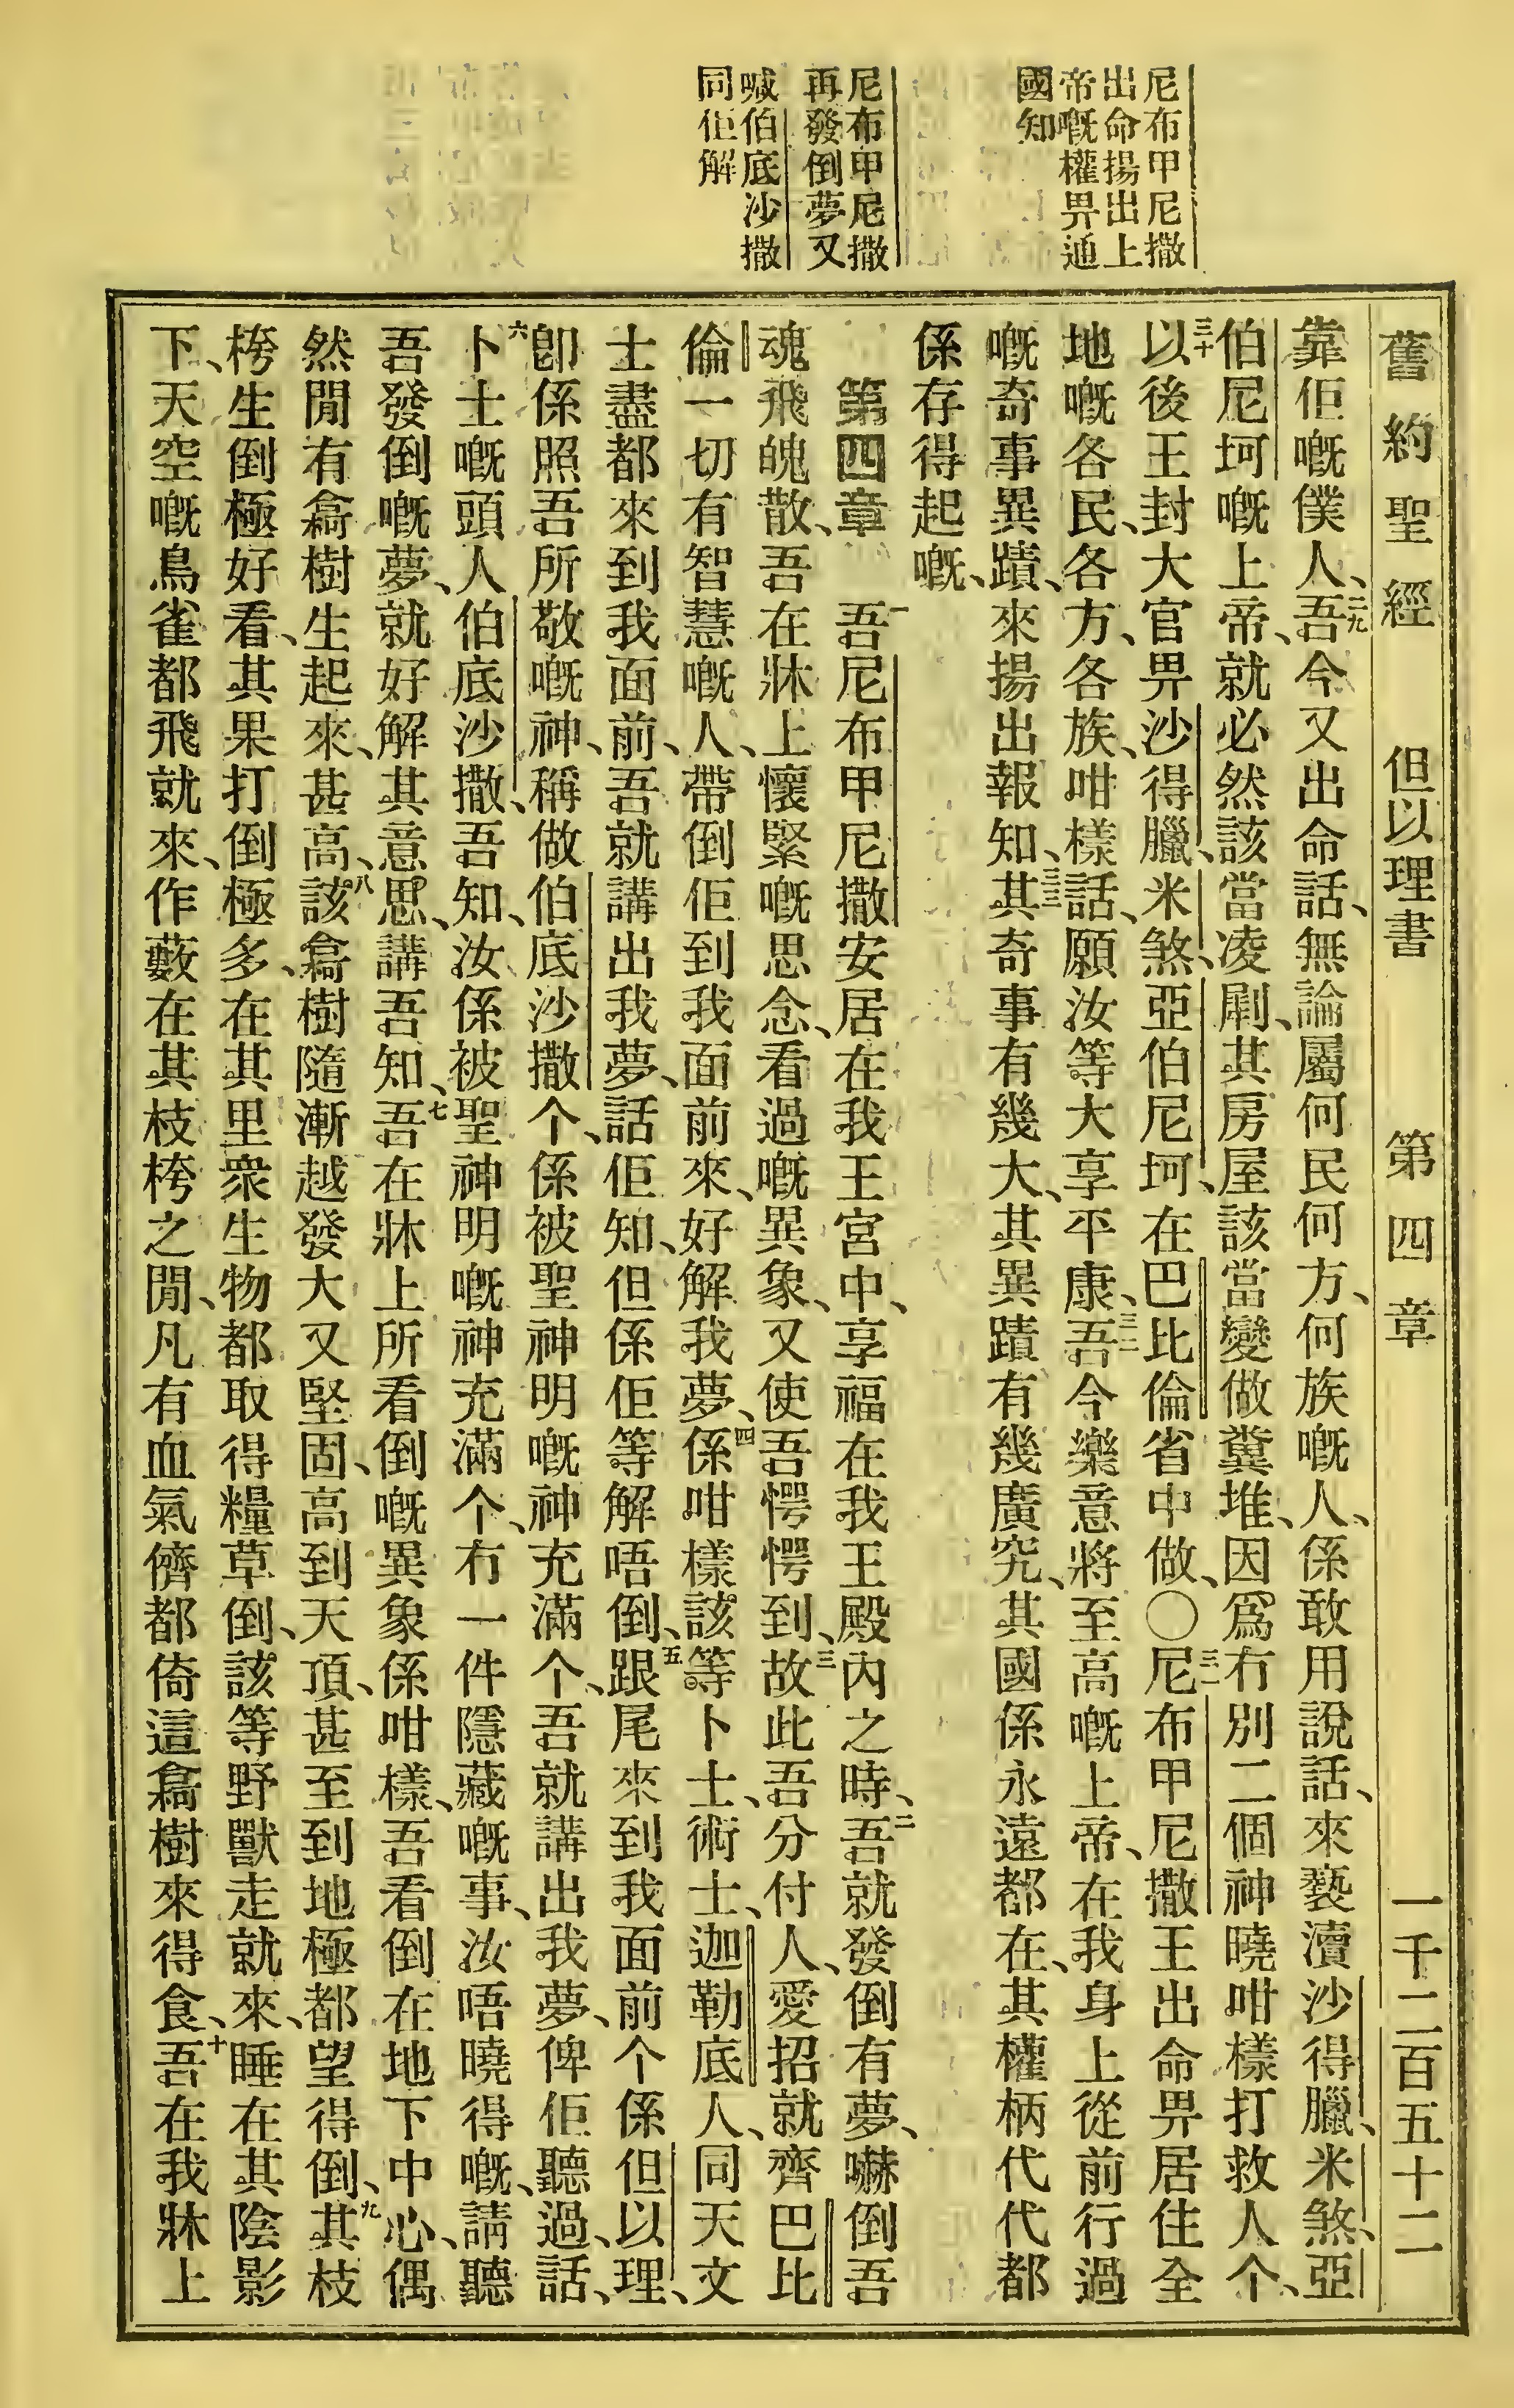 尼布甲尼撒
出命揚出上
帝嘅權畀通
國知
尼布甲尼撒
再發倒夢又
喊伯底沙撒
同佢解
舊約聖經 但以理書 第四章 一千二百五十二
靠佢嘅僕人、二九吾今又出命話、無論屬何民何方、何族嘅人、係敢用說話、來褻瀆沙得臘、米煞、亞
伯尼坷嘅上帝、就必然該當凌剮、其房屋該當變做糞堆、因爲冇別二個神曉咁樣打救人个、
三十以後王封大官畀沙得臘、米煞、亞伯尼坷、在巴比倫省中做、〇三一尼布甲尼撒王出命畀居住全
地嘅各民、各方、各族、咁樣話、願汝等大享平康、三二吾今樂意將至高嘅上帝、在我身上從前行過
嘅奇事異蹟、來揚出報知、三三其奇事有幾大、其異蹟有幾廣究、其國係永遠都在、其權柄代代都
係存得起嘅、
第四章 一吾尼布甲尼撒安居在我王宮中、享福在我王殿內之時、二吾就發倒有夢、嚇倒吾
魂飛魄散、吾在牀上懷緊嘅思念、看過嘅異象、又使吾愕愕到、三故此吾分付人、愛招就齊巴比
倫一切有智慧嘅人、帶倒佢到我面前來、好解我夢、四係咁樣該等卜士、術士、迦勒底人、同天文
士盡都來到我面前、吾就講出我夢、話佢知、但係佢等解唔倒、五跟尾來到我面前个係但以理、
卽係照吾所敬嘅神、稱做伯底沙撒个、係被聖神明嘅神充滿个、吾就講出我夢、俾佢聽過、話、
六卜士嘅頭人伯底沙撒、吾知、汝係被聖神明嘅神充滿个、冇一件隱藏嘅事、汝唔曉得嘅、請聽
吾發倒嘅夢、就好解其意思、講吾知、七吾在牀上所看倒嘅異象係咁樣、吾看倒在地下中心、偶
然閒有翕樹生起來、甚高、八該翕樹隨漸越發大又堅固、高到天頂、甚至到地極都望得倒、九其枝
桍生倒極好看、其果打倒極多、在其里衆生物都取得糧草倒、該等野獸走就來、睡在其陰影
下、天空嘅鳥雀都飛就來、作藪在其枝桍之閒、凡有血氣儕都倚這翕樹來得食、十吾在我牀上